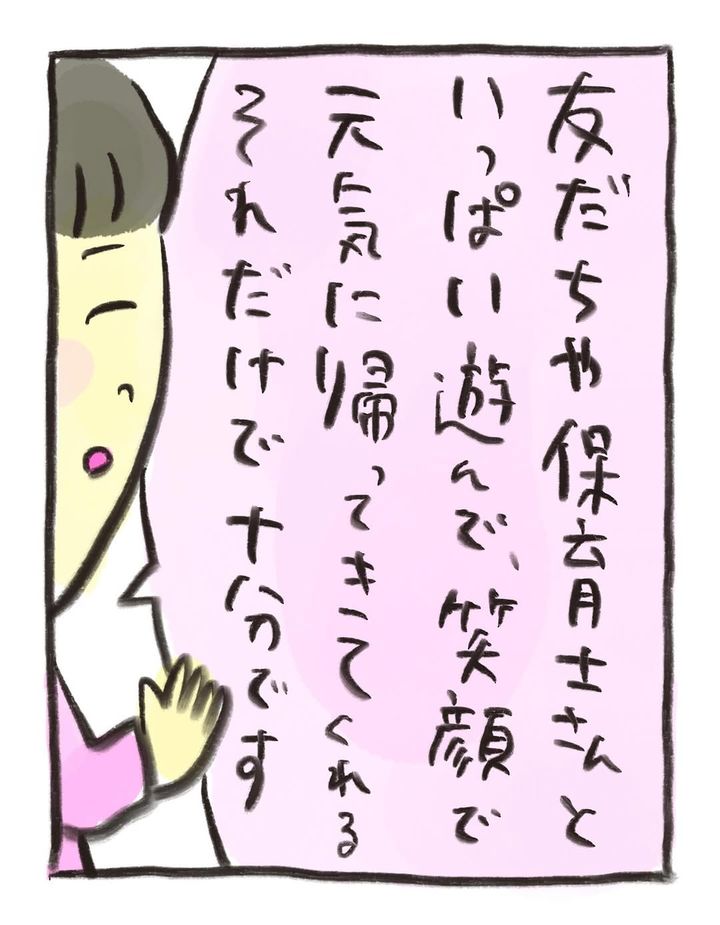 友だちや保育士さんと
いっぱい遊んで、笑顔で
元気に帰ってきてくれる
それだけで十分です